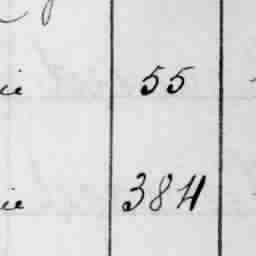 ie 55
ie 384